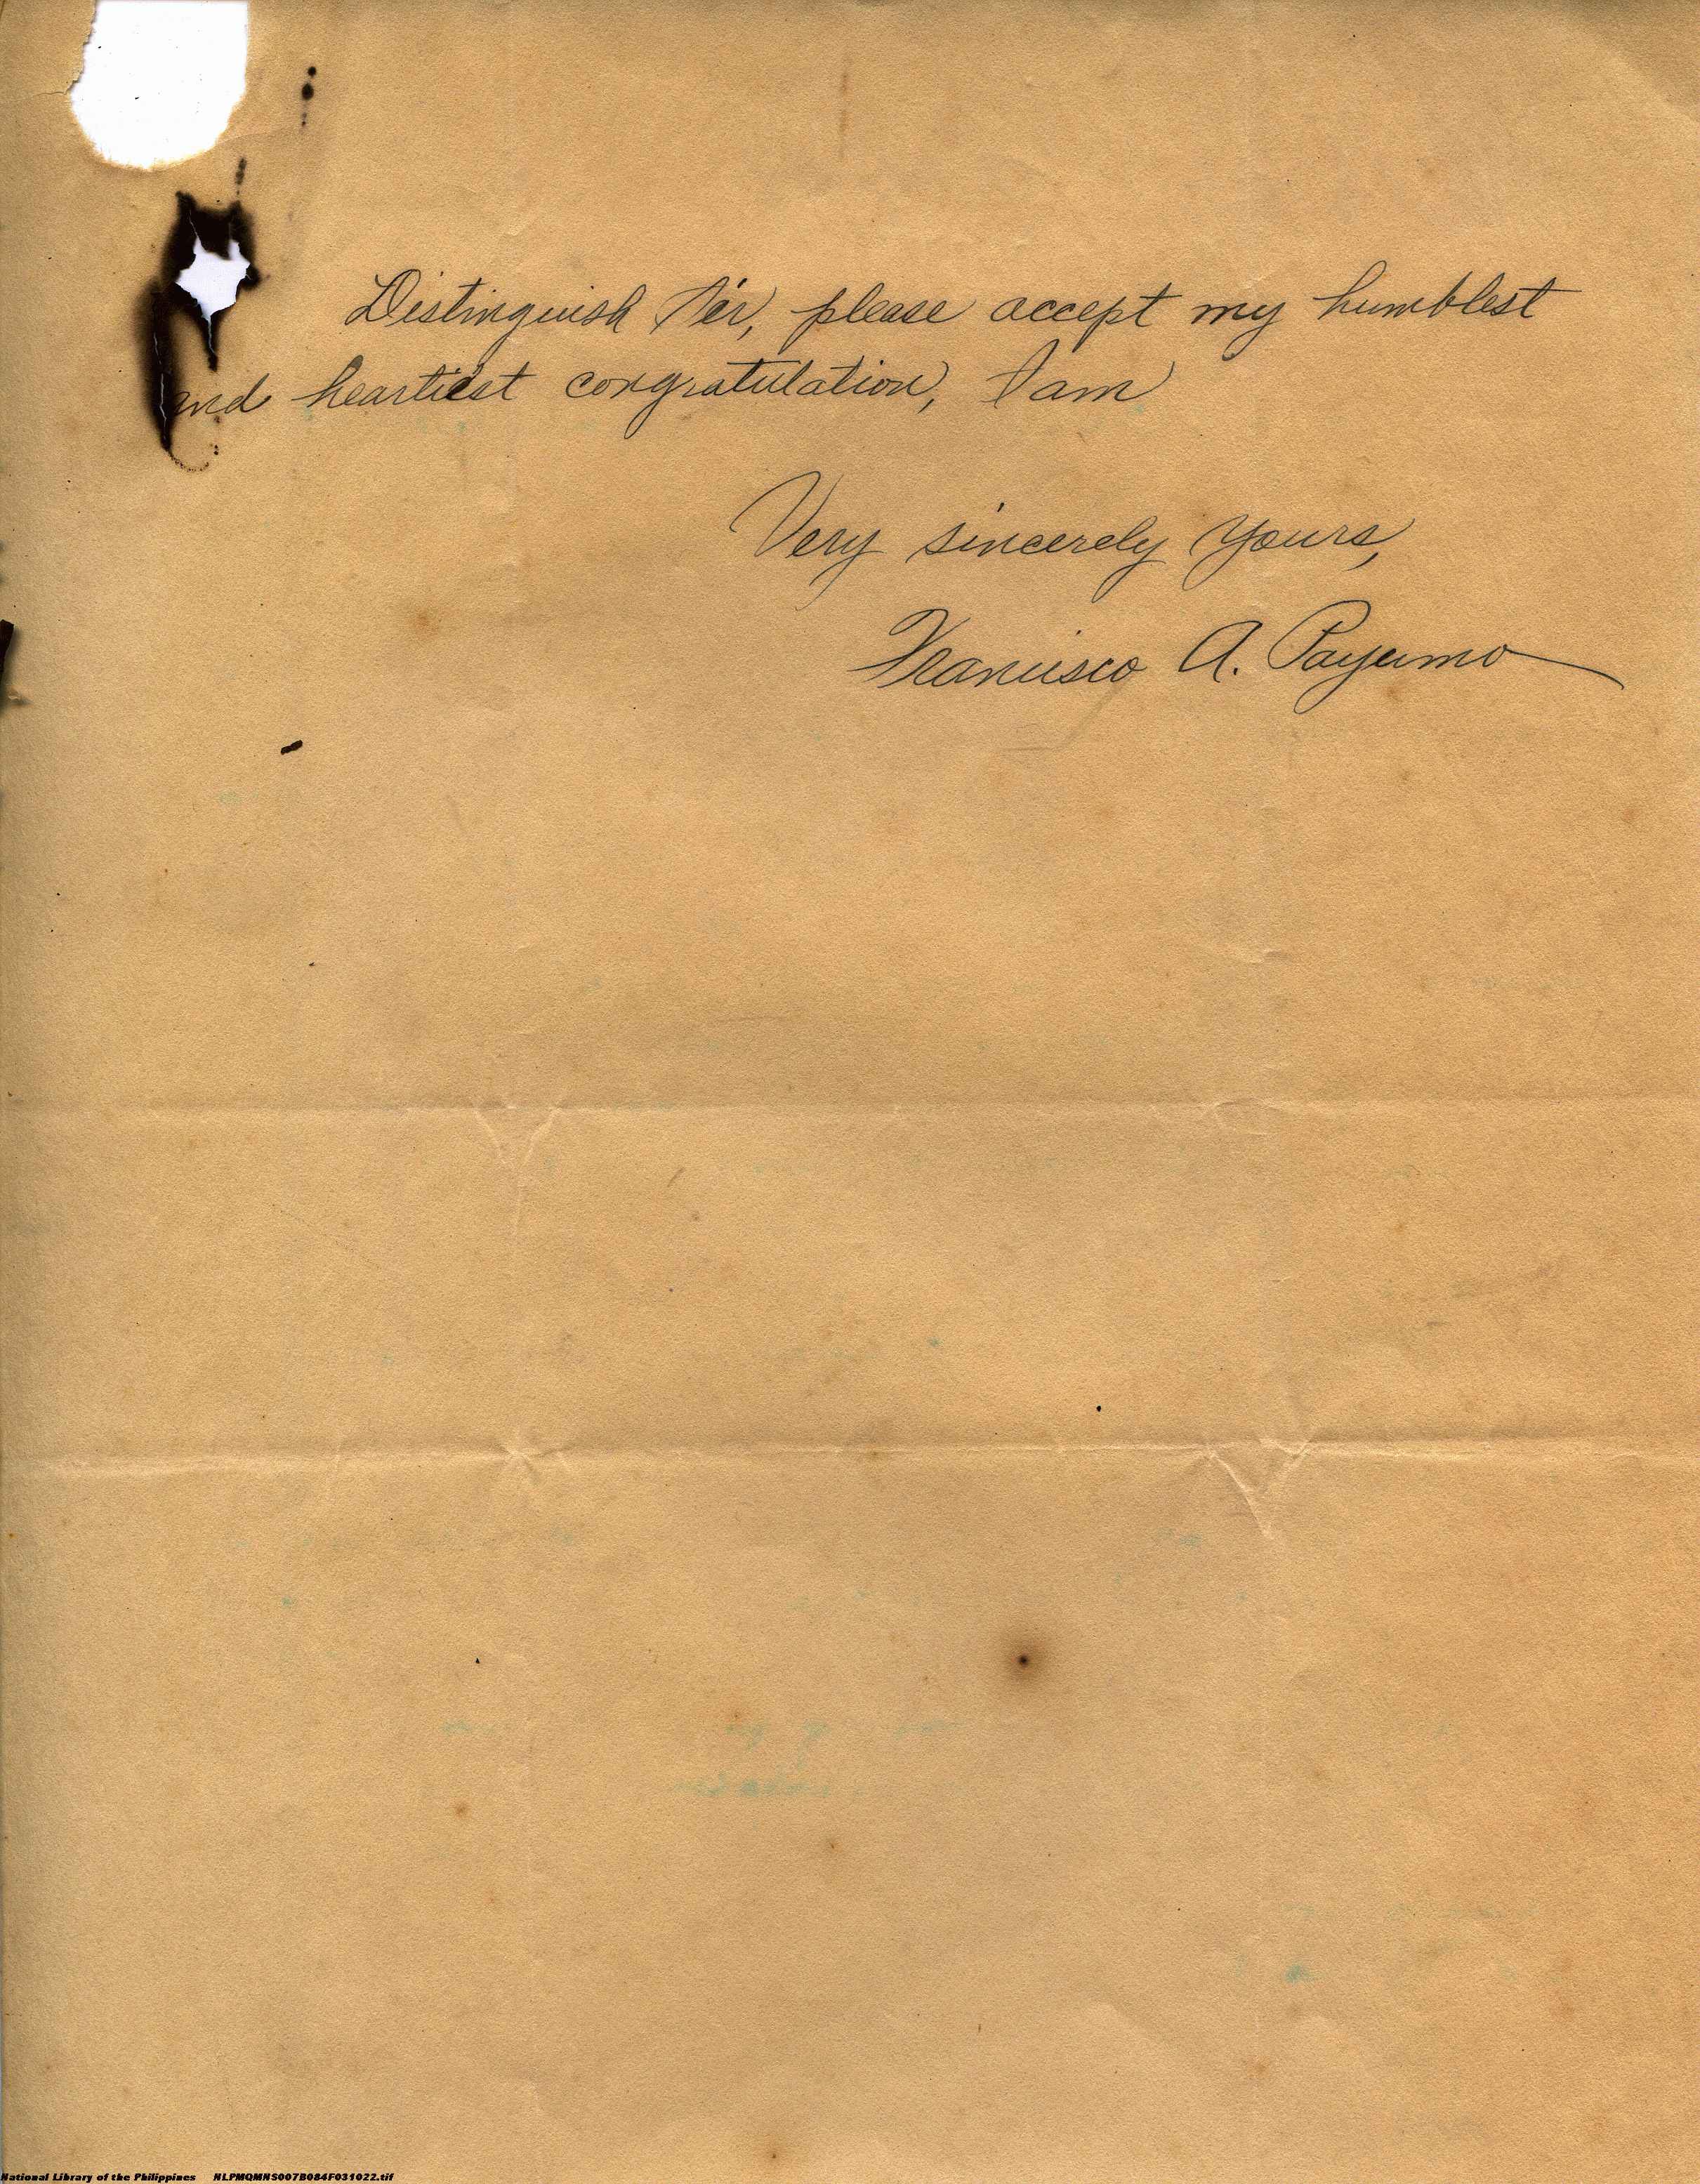 Distinguish Sir, please accept my humblest
and heartiest congratulation, I am
Very sincerely yours,
Francisco A. Payumo
National Library of the Philippines NLPMQMNS007B084F031022.tif